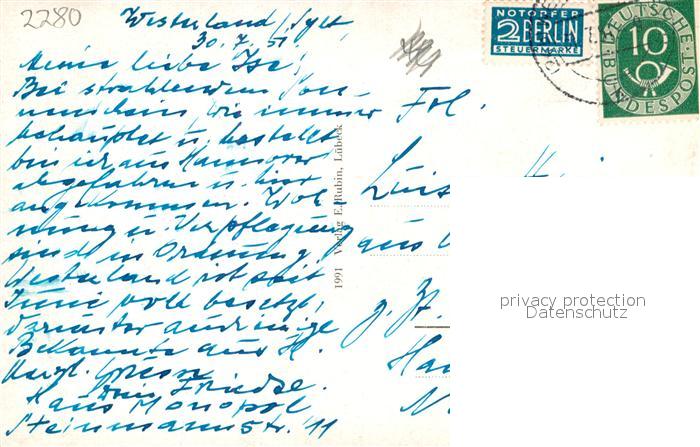 2280
Westerland/Sylt,
30.7.51.
Meine liebe Ise!
Bei strahlendem Son-
nenschein, wie immer
behauptet u. bestellt
bin ich aus Hannover
abgefahren u. hier
angekommen. Woh-
nung u. Verpflegung
sind in Ordnung.
Westerland ist seit
Juni voll besetzt,
darunter auch einige
Bekannte aus H.
Herzl. Grüsse
Dein Friedze.
Haus Monopol
Steinmannstr. 11
1991 Verlag E. Rubin, Lübeck
NOTOPFER
2 BERLIN
STEUERMARKE
DEUTSCHE
10
BUNDESPOST
Frl.
Luis
aus
z. Zt.
Han
N.
privacy protection
Datenschutz